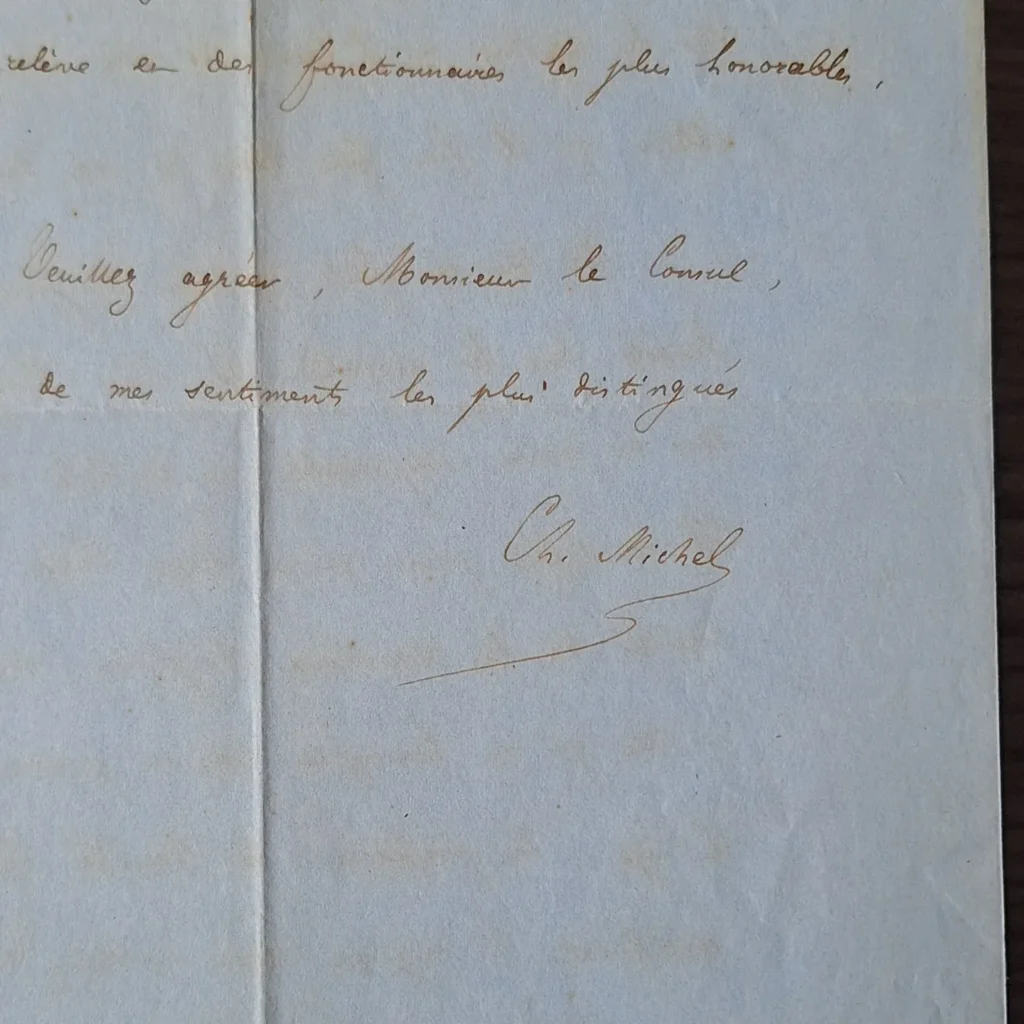 relève en des fonctionnaires les plus honorables,
Veuillez agréer, Monsieur le Consul,
de mes sentiments les plus distingués
Ch. Michel